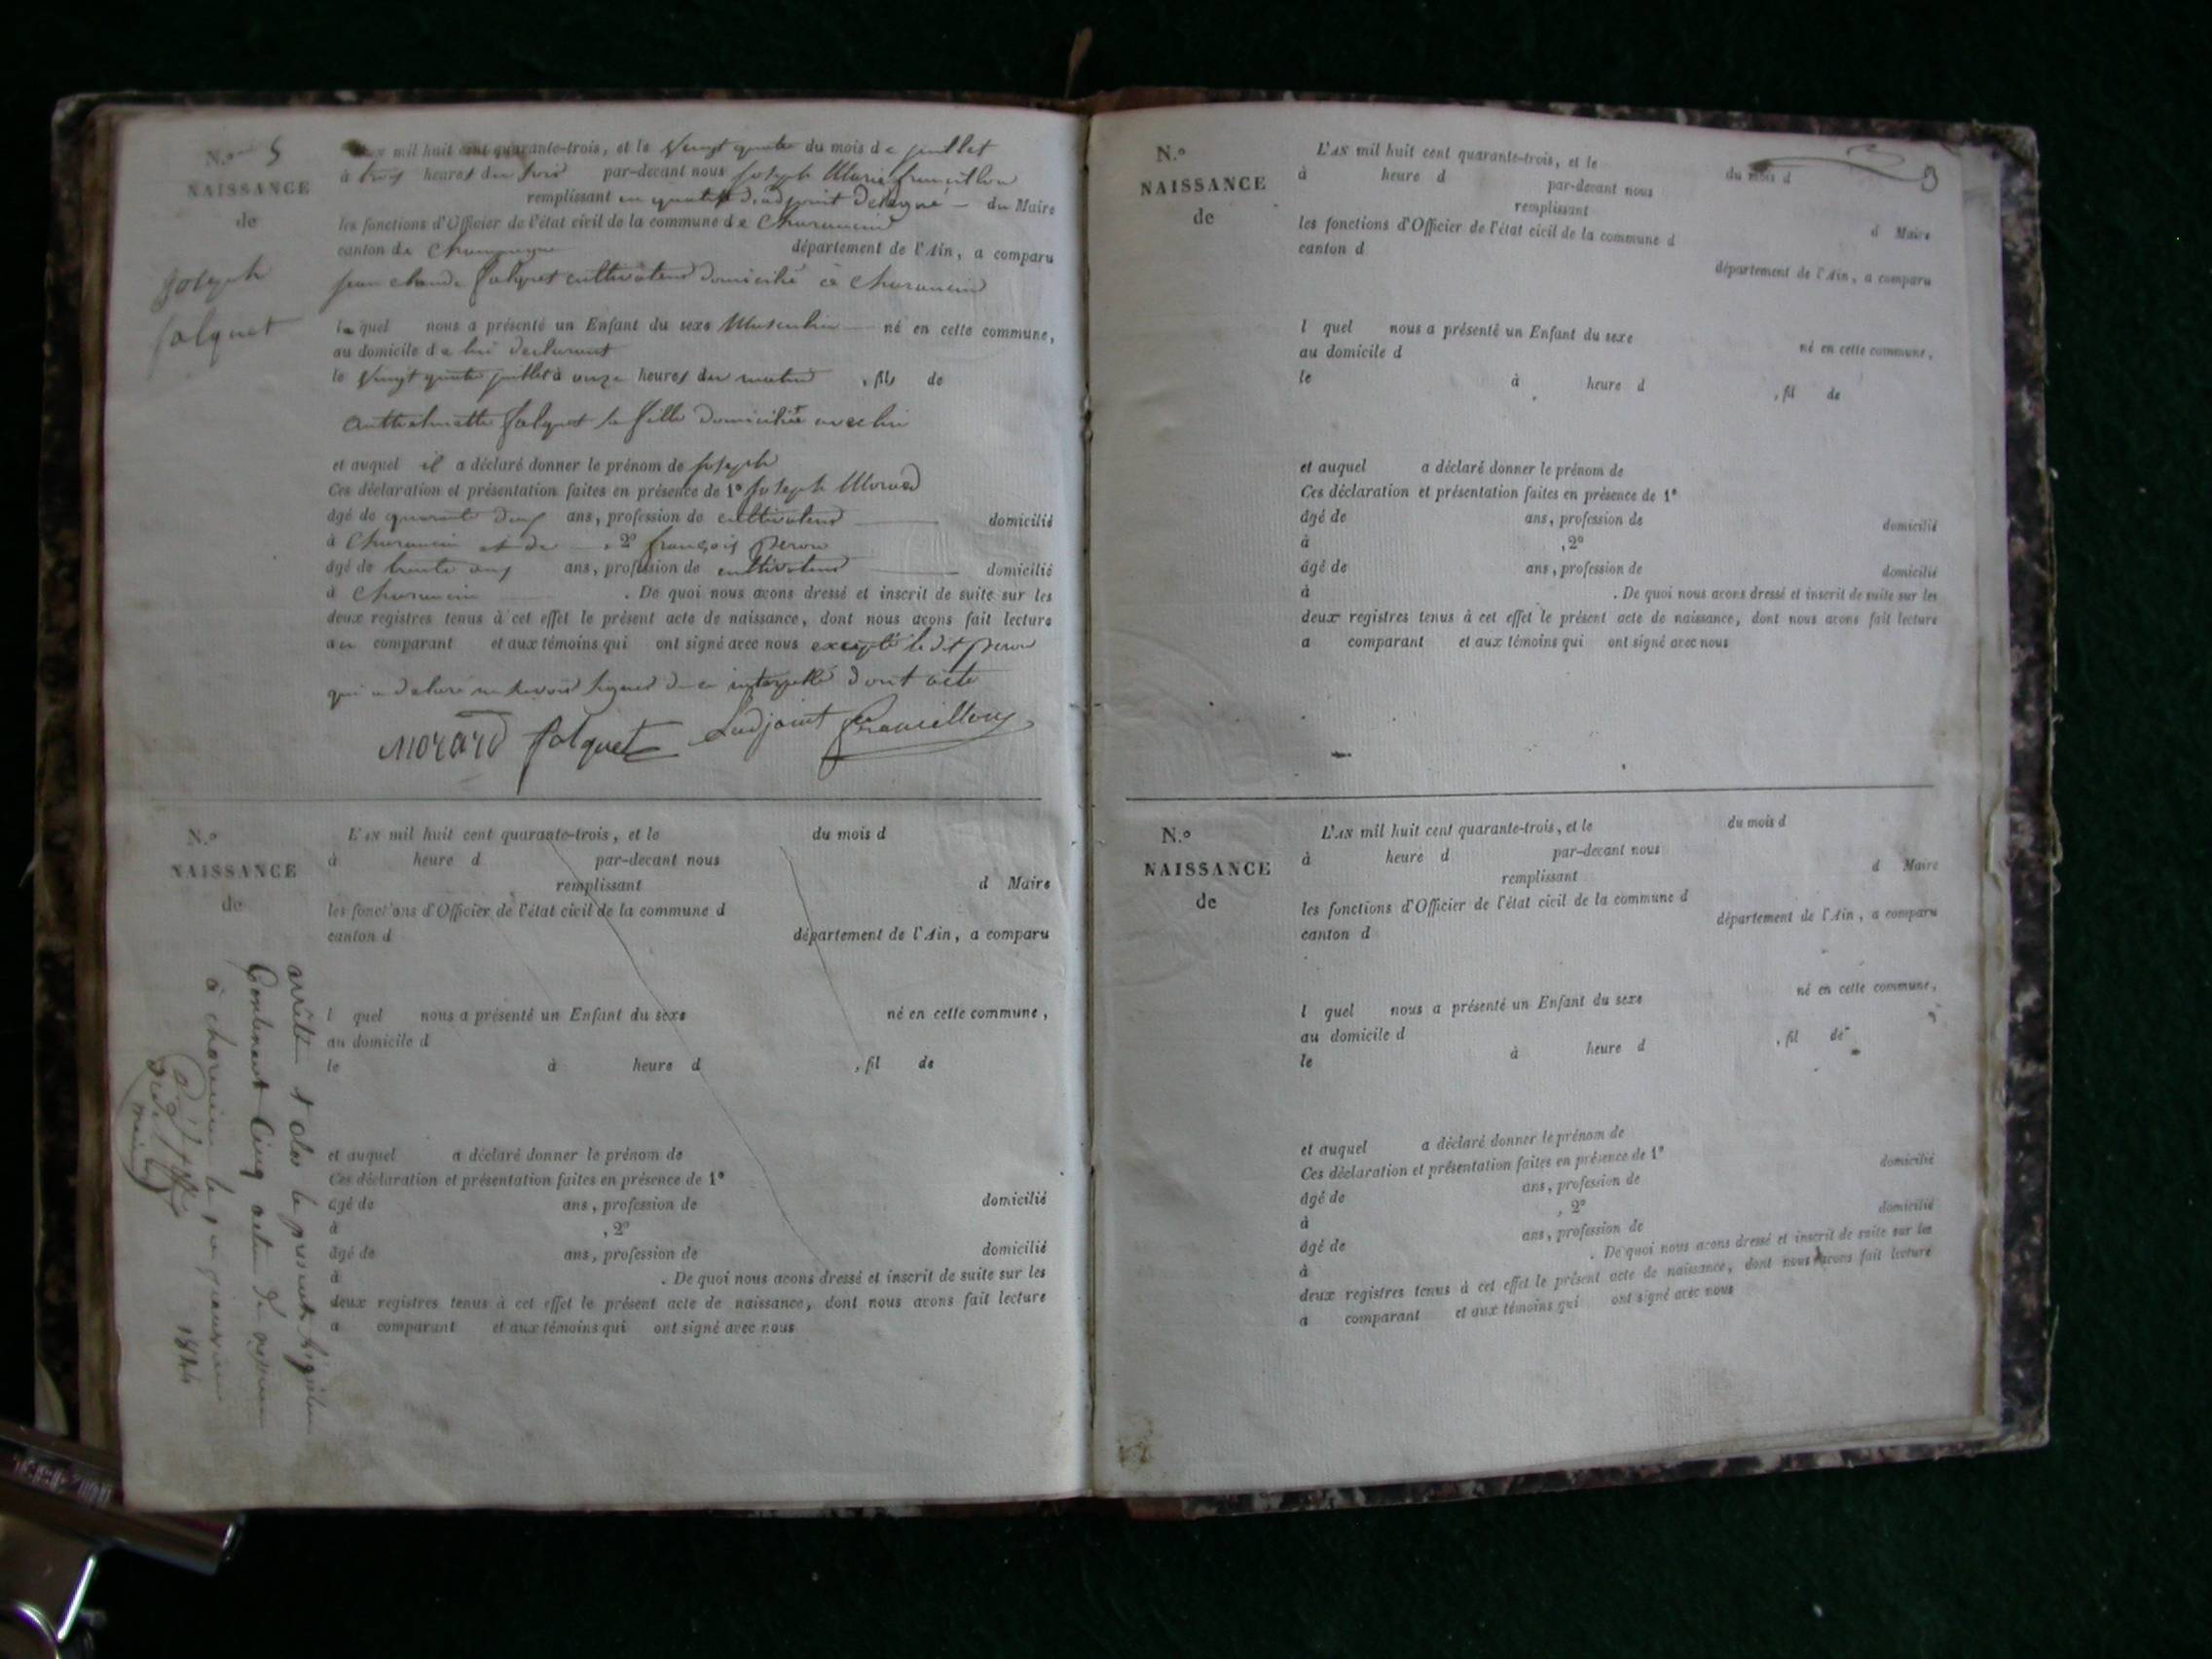 N.º 5
NAISSANCE
de
Joseph
falquet
L'AN mil huit cent quarante-trois, et le Vingt quatre du mois de juillet
à trois heures du soir par-devant nous Joseph Marie francillon
remplissant en qualité d'adjoint délégué du Maire
les fonctions d'Officier de l'état civil de la commune de Charancin
canton de Champagne département de l'Ain, a comparu
jean claude falquet cultivateur domicilié à Charancin
lequel nous a présenté un Enfant du sexe Masculin né en cette commune,
au domicile de lui declarant
le Vingt quatre juillet à onze heures du matin, fils de
falquet sa fille domiciliée avec lui
et auquel il a déclaré donner le prénom de joseph
Ces déclaration et présentation faites en présence de 1º joseph Morard
âgé de quarante deux ans, profession de cultivateur domicilié
à Charancin et de , 2º françois peron
âgé de trente ans, profession de cultivateur domicilié
à Charancin . De quoi nous avons dressé et inscrit de suite sur les
deux registres tenus à cet effet le présent acte de naissance, dont nous avons fait lecture
au comparant et aux témoins qui ont signé avec nous excepté le dit peron
qui a déclaré ne savoir signer de ce interpellé dont acte
Morard falquet Ladjoint francillon
N.º
NAISSANCE
de
L'AN mil huit cent quarante-trois, et le du mois d
à heure d par-devant nous
remplissant d Maire
les fonctions d'Officier de l'état civil de la commune d
canton d département de l'Ain, a comparu
l quel nous a présenté un Enfant du sexe né en cette commune,
au domicile d
le à heure d , fil de
et auquel a déclaré donner le prénom de
Ces déclaration et présentation faites en présence de 1º
âgé de ans, profession de domicilié
à , 2º
âgé de ans, profession de domicilié
à . De quoi nous avons dressé et inscrit de suite sur les
deux registres tenus à cet effet le présent acte de naissance, dont nous avons fait lecture
a comparant et aux témoins qui ont signé avec nous
arrêté & clos le présent Registre
Contenant Cinq actes de
à charancin le 1 er janvier 1844
maire
3
N.º
NAISSANCE
de
L'AN mil huit cent quarante-trois, et le du mois d
à heure d par-devant nous
remplissant d Maire
les fonctions d'Officier de l'état civil de la commune d
canton d département de l'Ain, a comparu
l quel nous a présenté un Enfant du sexe né en cette commune,
au domicile d
le à heure d , fil de
et auquel a déclaré donner le prénom de
Ces déclaration et présentation faites en présence de 1º
âgé de ans, profession de domicilié
à , 2º
âgé de ans, profession de domicilié
à . De quoi nous avons dressé et inscrit de suite sur les
deux registres tenus à cet effet le présent acte de naissance, dont nous avons fait lecture
a comparant et aux témoins qui ont signé avec nous
N.º
NAISSANCE
de
L'AN mil huit cent quarante-trois, et le du mois d
à heure d par-devant nous
remplissant d Maire
les fonctions d'Officier de l'état civil de la commune d
canton d département de l'Ain, a comparu
l quel nous a présenté un Enfant du sexe né en cette commune,
au domicile d
le à heure d , fil de
et auquel a déclaré donner le prénom de
Ces déclaration et présentation faites en présence de 1º
âgé de ans, profession de domicilié
à , 2º
âgé de ans, profession de domicilié
à . De quoi nous avons dressé et inscrit de suite sur les
deux registres tenus à cet effet le présent acte de naissance, dont nous avons fait lecture
a comparant et aux témoins qui ont signé avec nous